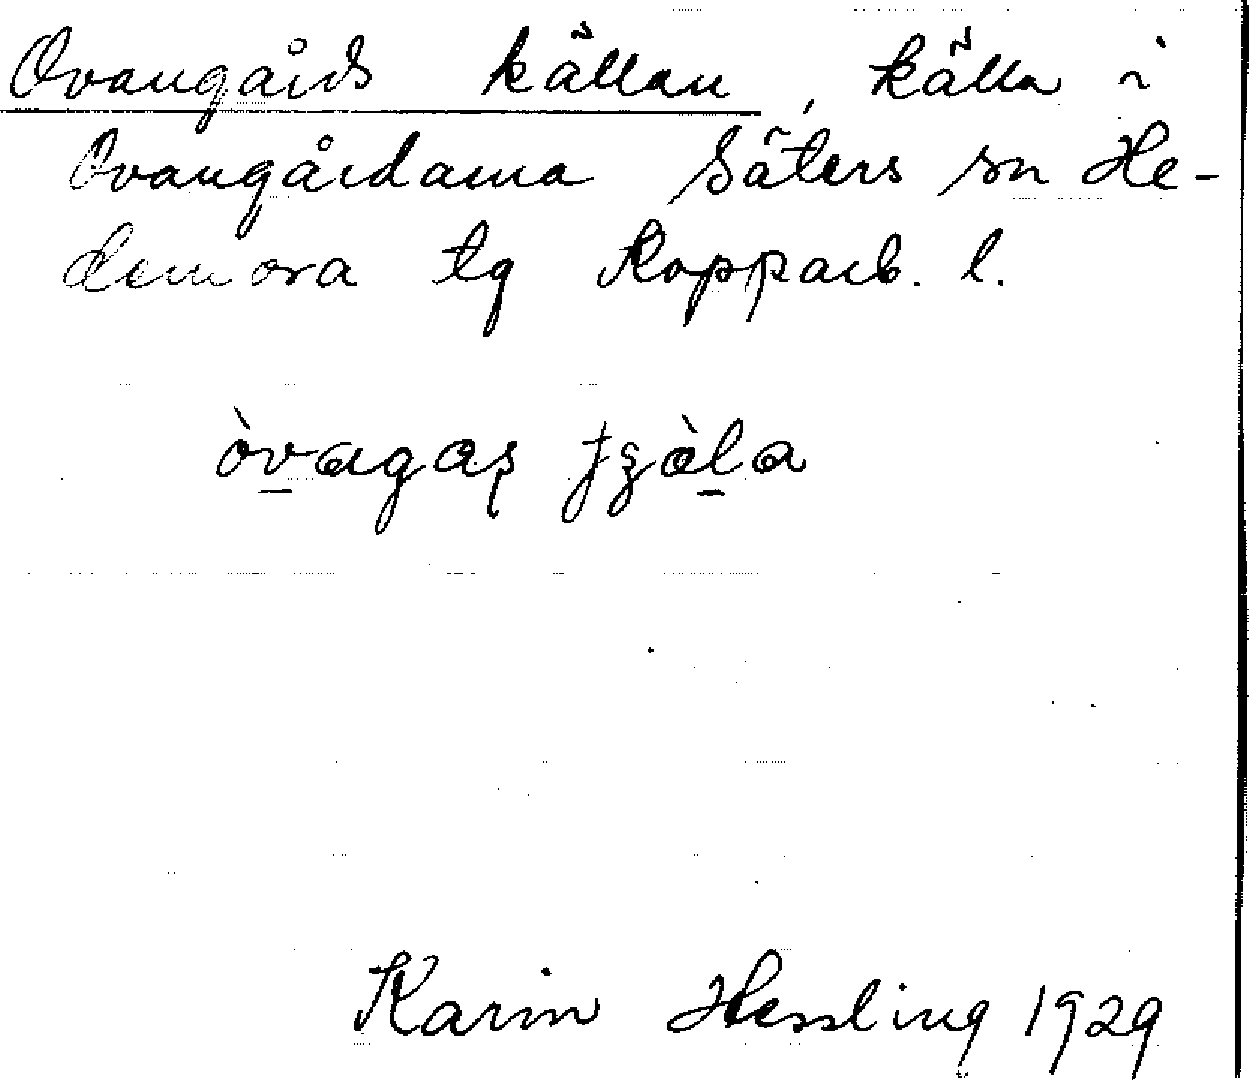 Ovangårds källan, källa i
Ovangårdarna Säters sn He-
demora tg Kopparb. l.
Karin Hessling 1929